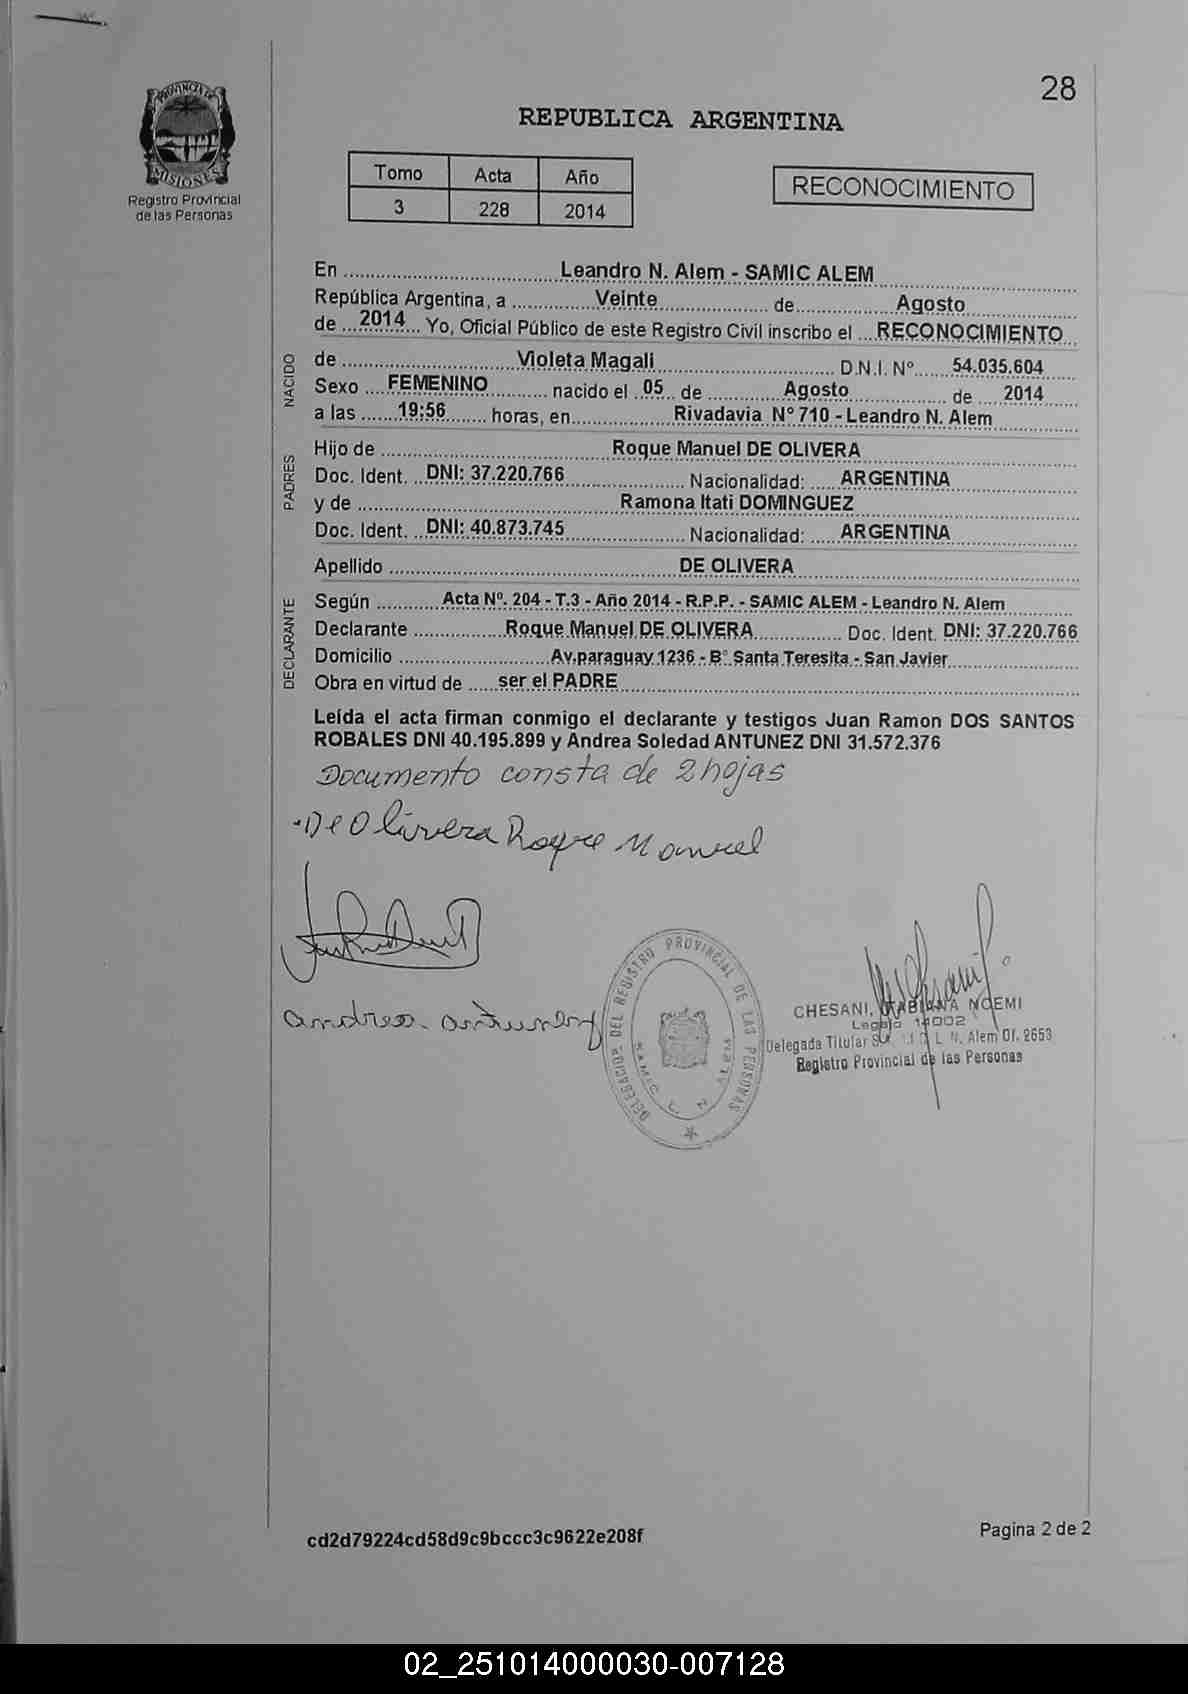 28
PROVINCIA DE
MISIONES
Registro Provincial
de las Personas
REPUBLICA ARGENTINA
Tomo Acta Año
3 228 2014
RECONOCIMIENTO
En Leandro N. Alem - SAMIC ALEM
República Argentina, a Veinte de Agosto
de 2014 Yo, Oficial Público de este Registro Civil inscribo el RECONOCIMIENTO
NACIDO
de Violeta Magali D.N.I. Nº 54.035.604
Sexo FEMENINO nacido el 05 de Agosto de 2014
a las 19:56 horas, en Rivadavia Nº 710 - Leandro N. Alem
PADRES
Hijo de Roque Manuel DE OLIVERA
Doc. Ident. DNI: 37.220.766 Nacionalidad: ARGENTINA
y de Ramona Itati DOMINGUEZ
Doc. Ident. DNI: 40.873.745 Nacionalidad: ARGENTINA
Apellido DE OLIVERA
DECLARANTE
Según Acta Nº. 204 - T.3 - Año 2014 - R.P.P. - SAMIC ALEM - Leandro N. Alem
Declarante Roque Manuel DE OLIVERA Doc. Ident. DNI: 37.220.766
Domicilio Av.paraguay 1236 - B° Santa Teresita - San Javier
Obra en virtud de ser el PADRE
Leída el acta firman conmigo el declarante y testigos Juan Ramon DOS SANTOS
ROBALES DNI 40.195.899 y Andrea Soledad ANTUNEZ DNI 31.572.376
Documento consta de 2 hojas
De Olivera Roque Manuel
andrea antunez
DELEGACION DEL REGISTRO PROVINCIAL DE LAS PERSONAS
SAMIC L. N. ALEM
CHESANI, FABIANA NOEMI
Legajo 14002
Delegada Titular L. N. Alem Of. 2653
Registro Provincial de las Personas
cd2d79224cd58d9c9bccc3c9622e208f
Pagina 2 de 2
02_251014000030-007128